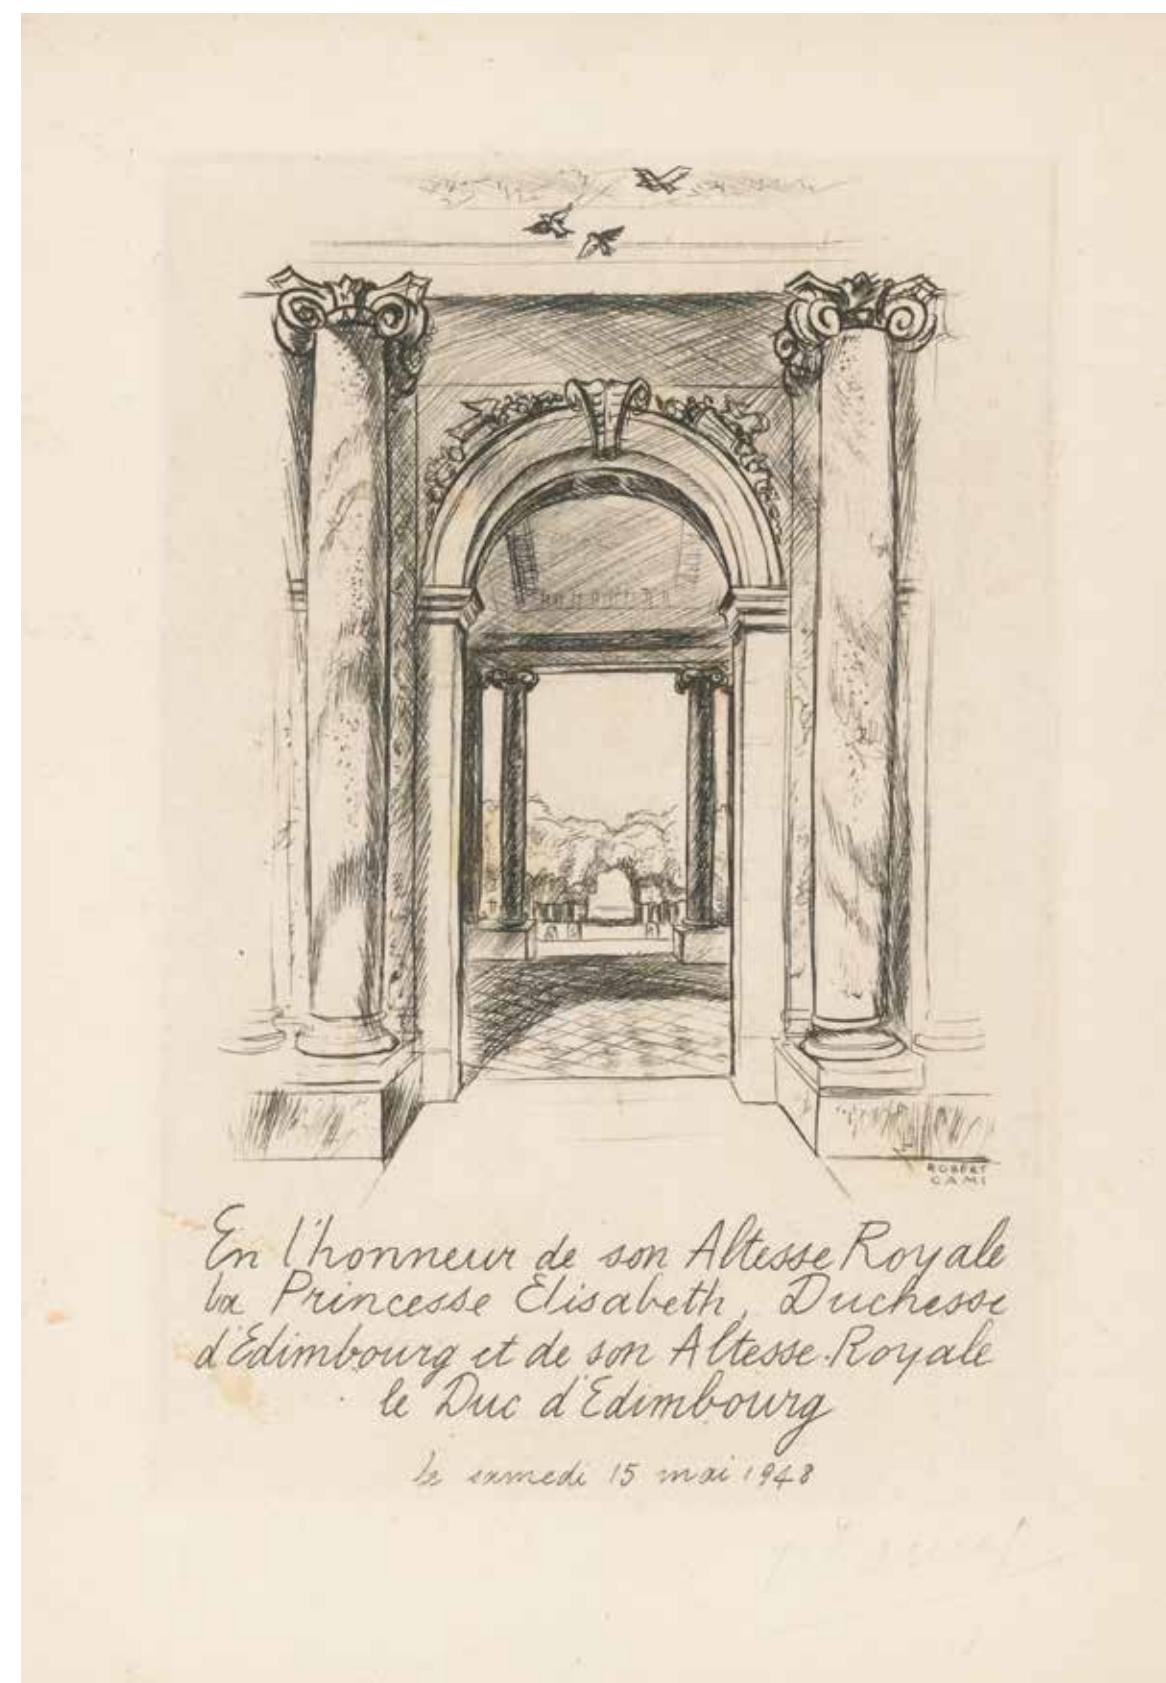 ROBERT
CAMI
En l'honneur de son Altesse Royale
la Princesse Elisabeth, Duchesse
d'Edimbourg et de son Altesse Royale
le Duc d'Edimbourg
le samedi 15 mai 1948